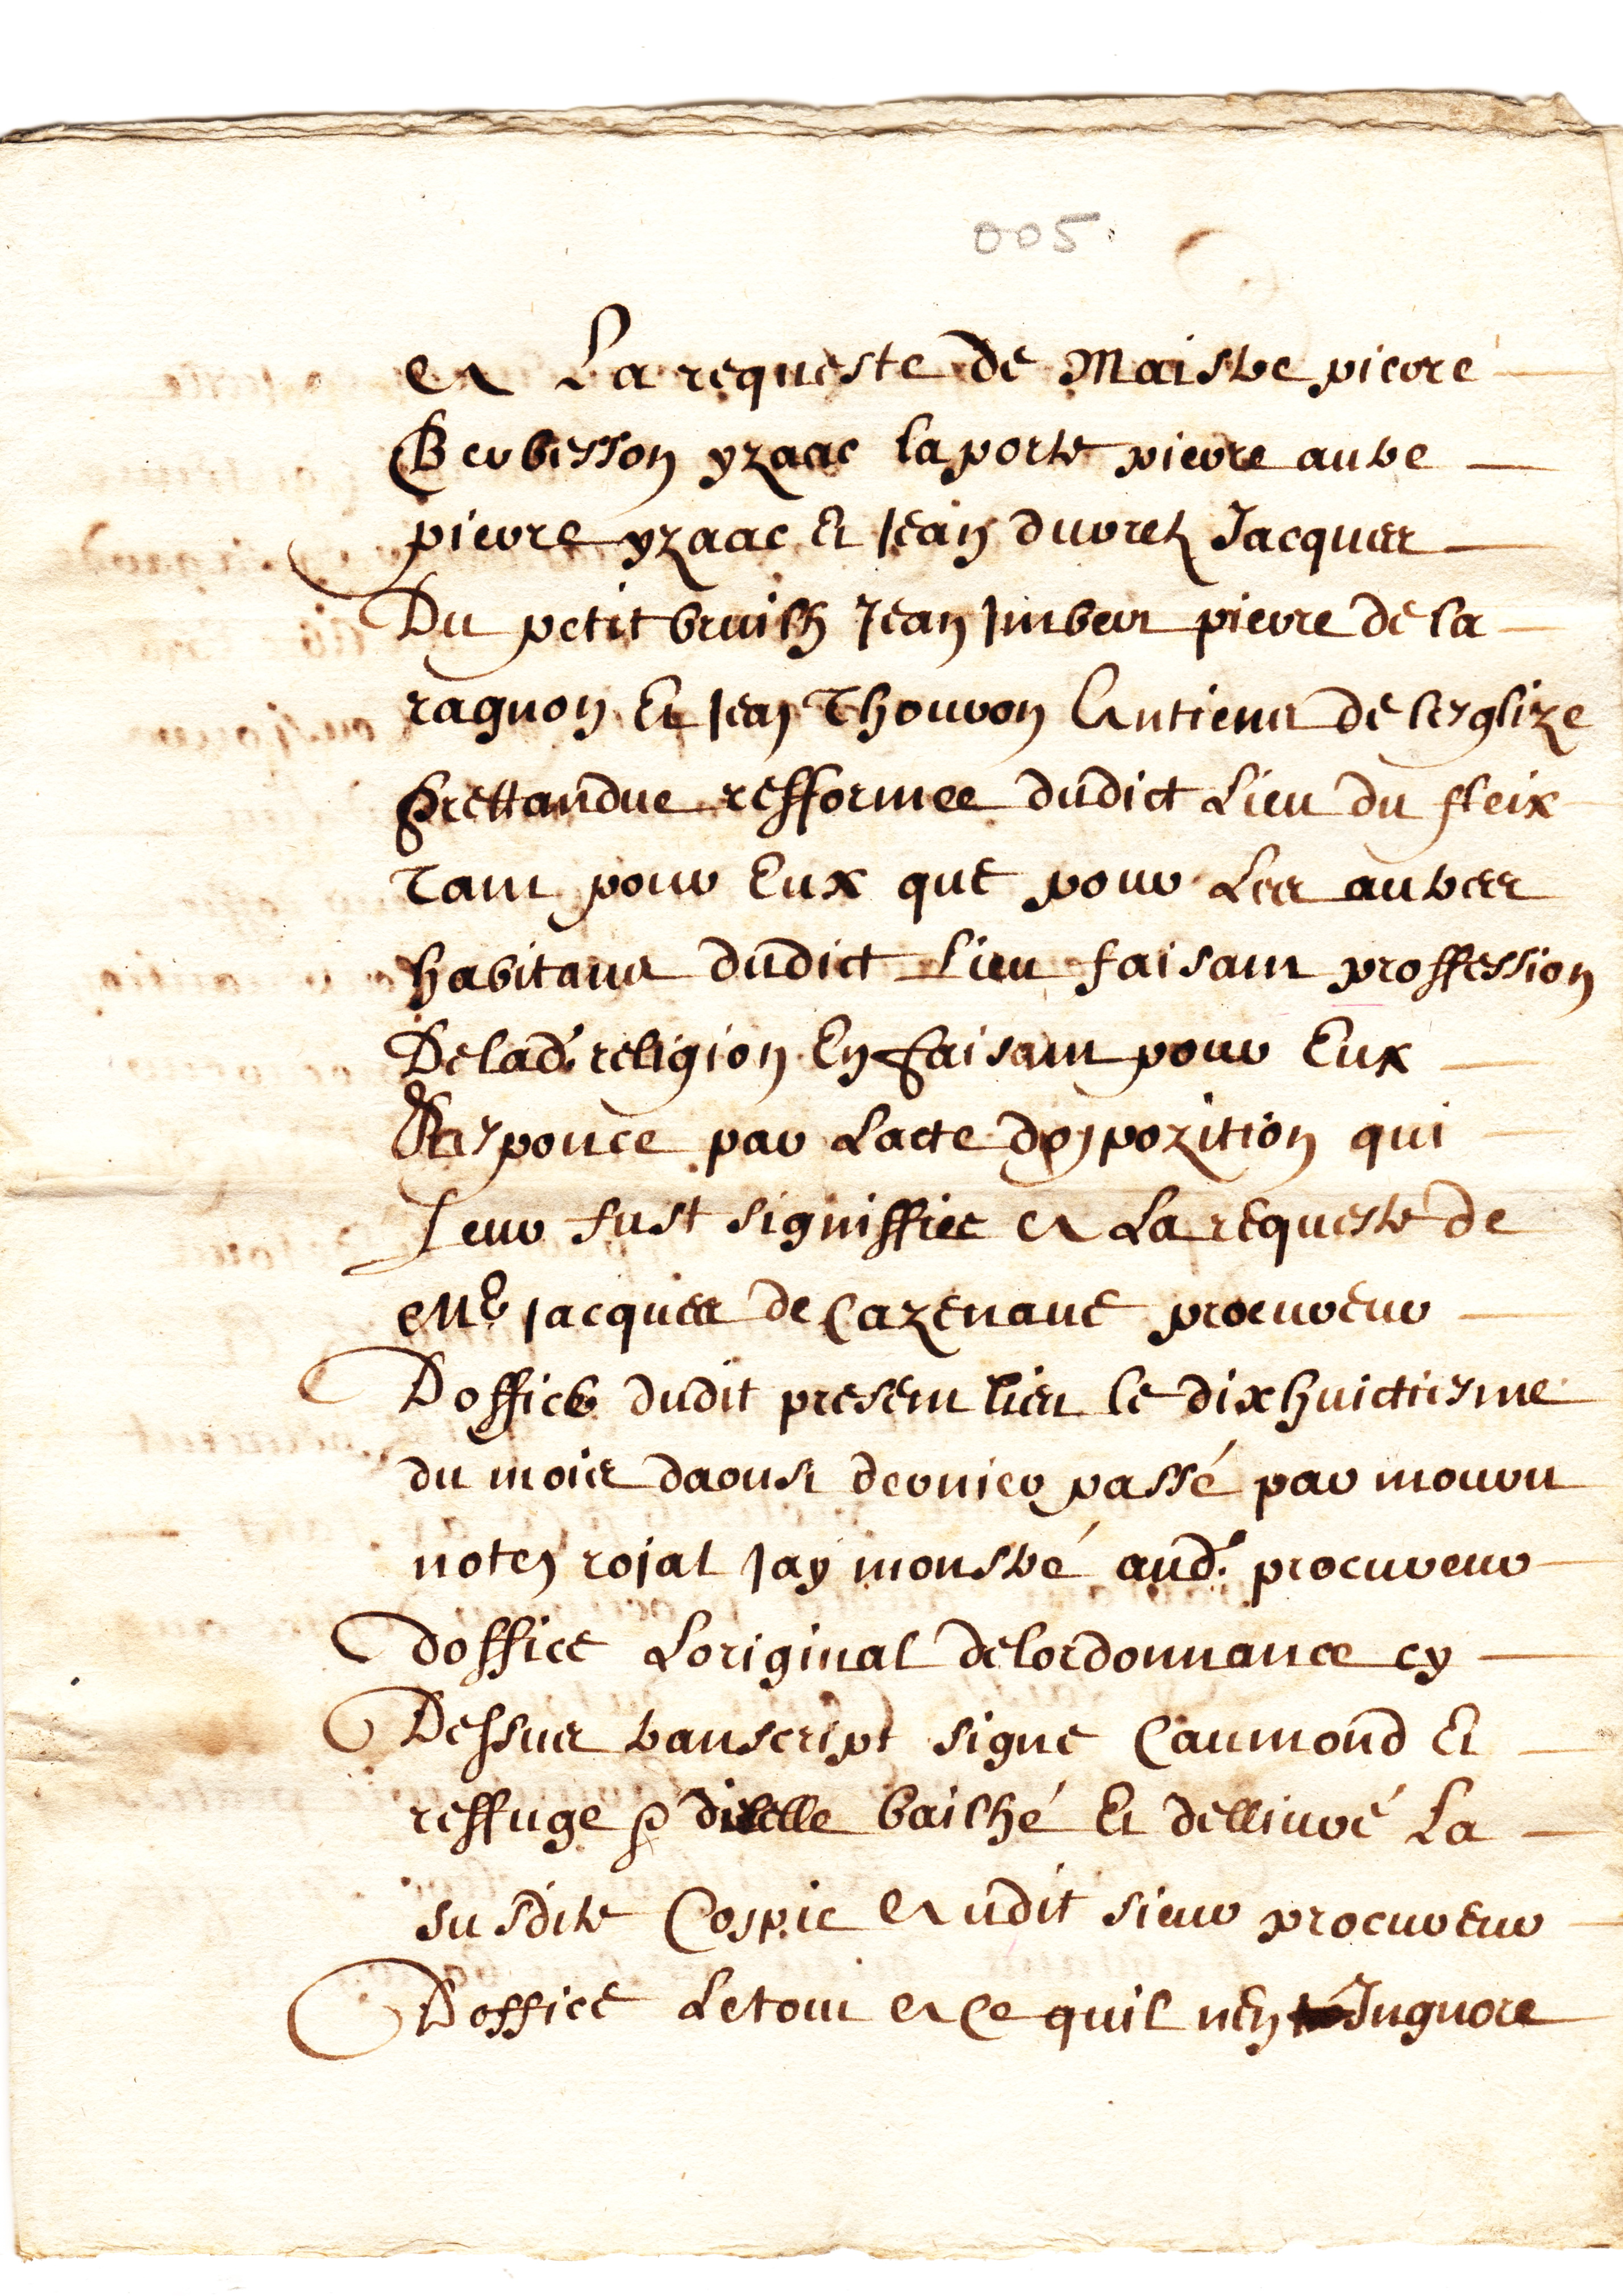 005
A La requeste de Maistre pierre
Berbesson yzaac laporte pierre autre
pierre yzaac Et Jean duvret Jacques
Du petit bruilh Jean Imbert pierre de la
ragnon Et Jean Thouron Antiens de lesglize
prettandue refformee dudict Lieu du fleix
Tant pour Eux que pour Les autres
habitans dudict Lieu faisant proffession
De lad. religion En faisant pour Eux
Responce par Lacte dopozition qui
Leur fust signiffiee A La requeste de
Me Jacques de Cazenave procureur
Doffice dudit present lieu le dixhuictiesme
du mois daoust dernier passé par mouru
noter roial Jay monstré aud. procureur
doffice Loriginal de lordonnance cy
Dessus transcript signe Caumond Et
reffuge dicelle bailhé Et dellivré La
susdite Coppie Audit sieur procureur
Doffice Le tout A Ce quil nen Ingnore